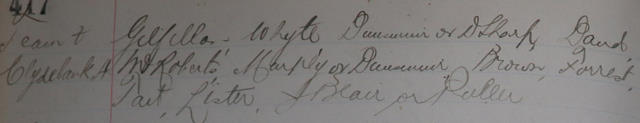 417
Team v Gilfillan - Whyte Dunsmuir or D Sharp, David
Clydebank A McRoberts Murphy or Dunsmuir Brown, Forrest,
Tait, Lister, J Blair or Puller